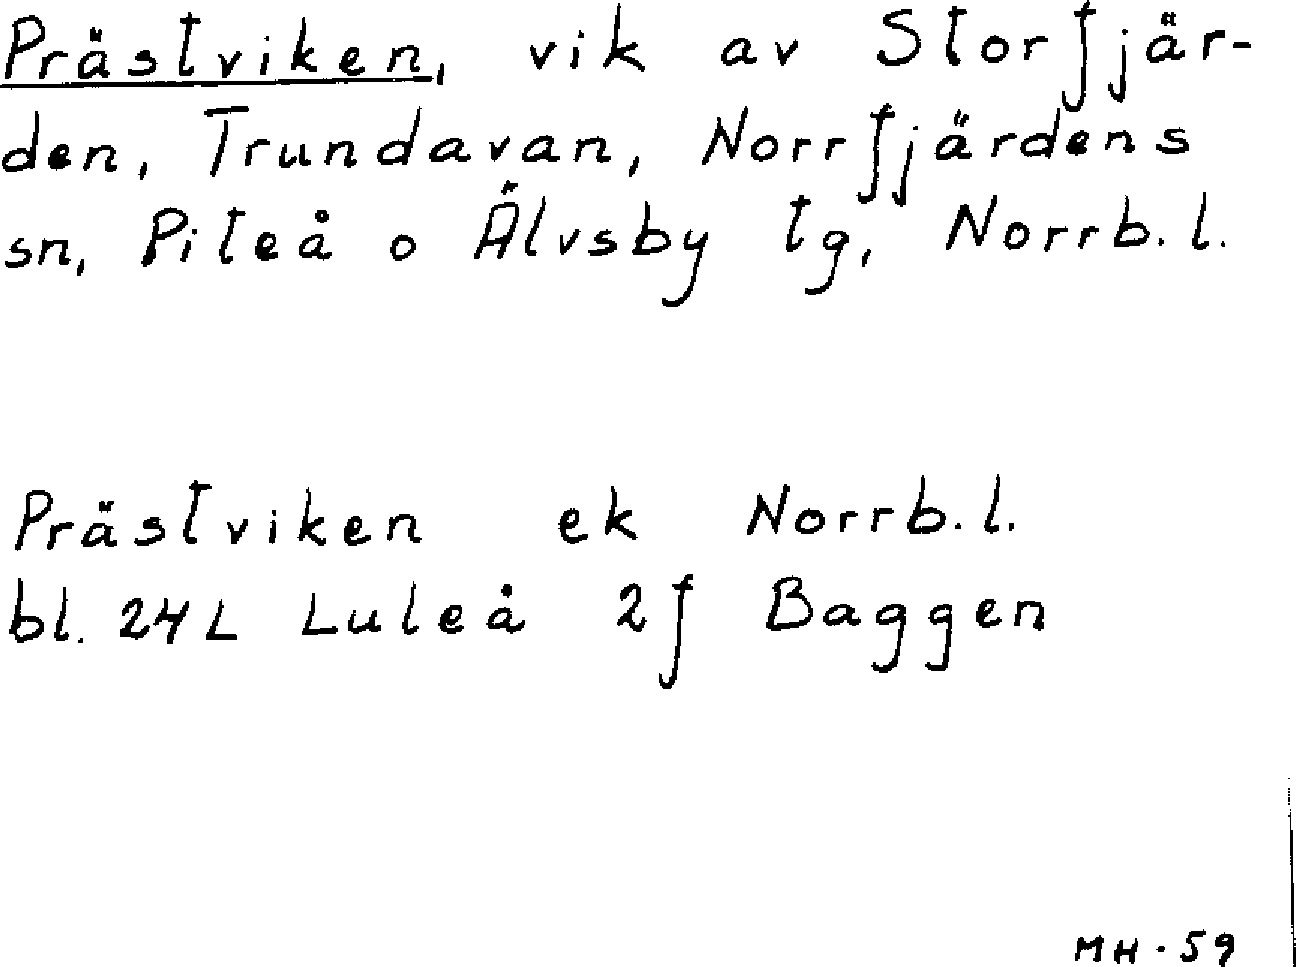 Prästviken, vik av Storfjär-
den, Trundavan, Norrfjärdens
sn, Piteå o Älvsby tg, Norrb. l.
Prästviken ek Norrb. l.
bl. 24L Luleå 2f Baggen
MH·59